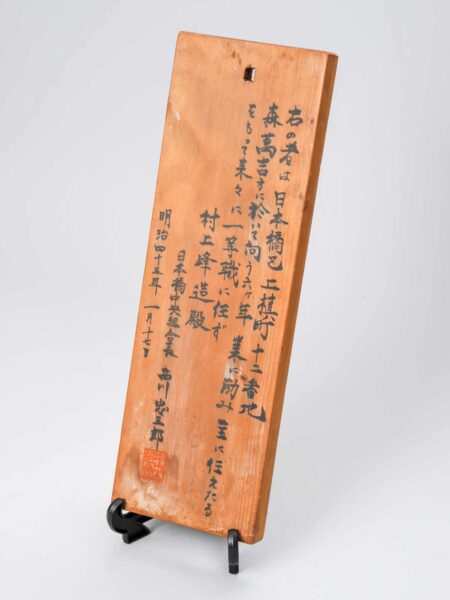 右の者は 日本橋区 上槇町 十二番地
森萬吉方に於いて向う六ヶ年 業に励み 主に仕えたる
をもって来々に一等職に任ず
村上峰造殿
日本橋中央組合長 西川忠五郎
明治四十五年 一月十七日